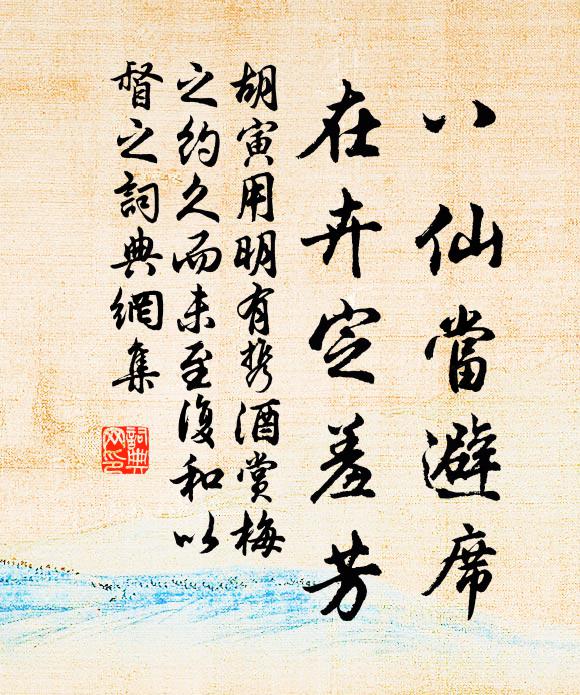 八仙當避席
在卉定羞芳
胡寅用明有携酒賞梅
之約久而未至復和以
督之詞典網集
詞典
网印